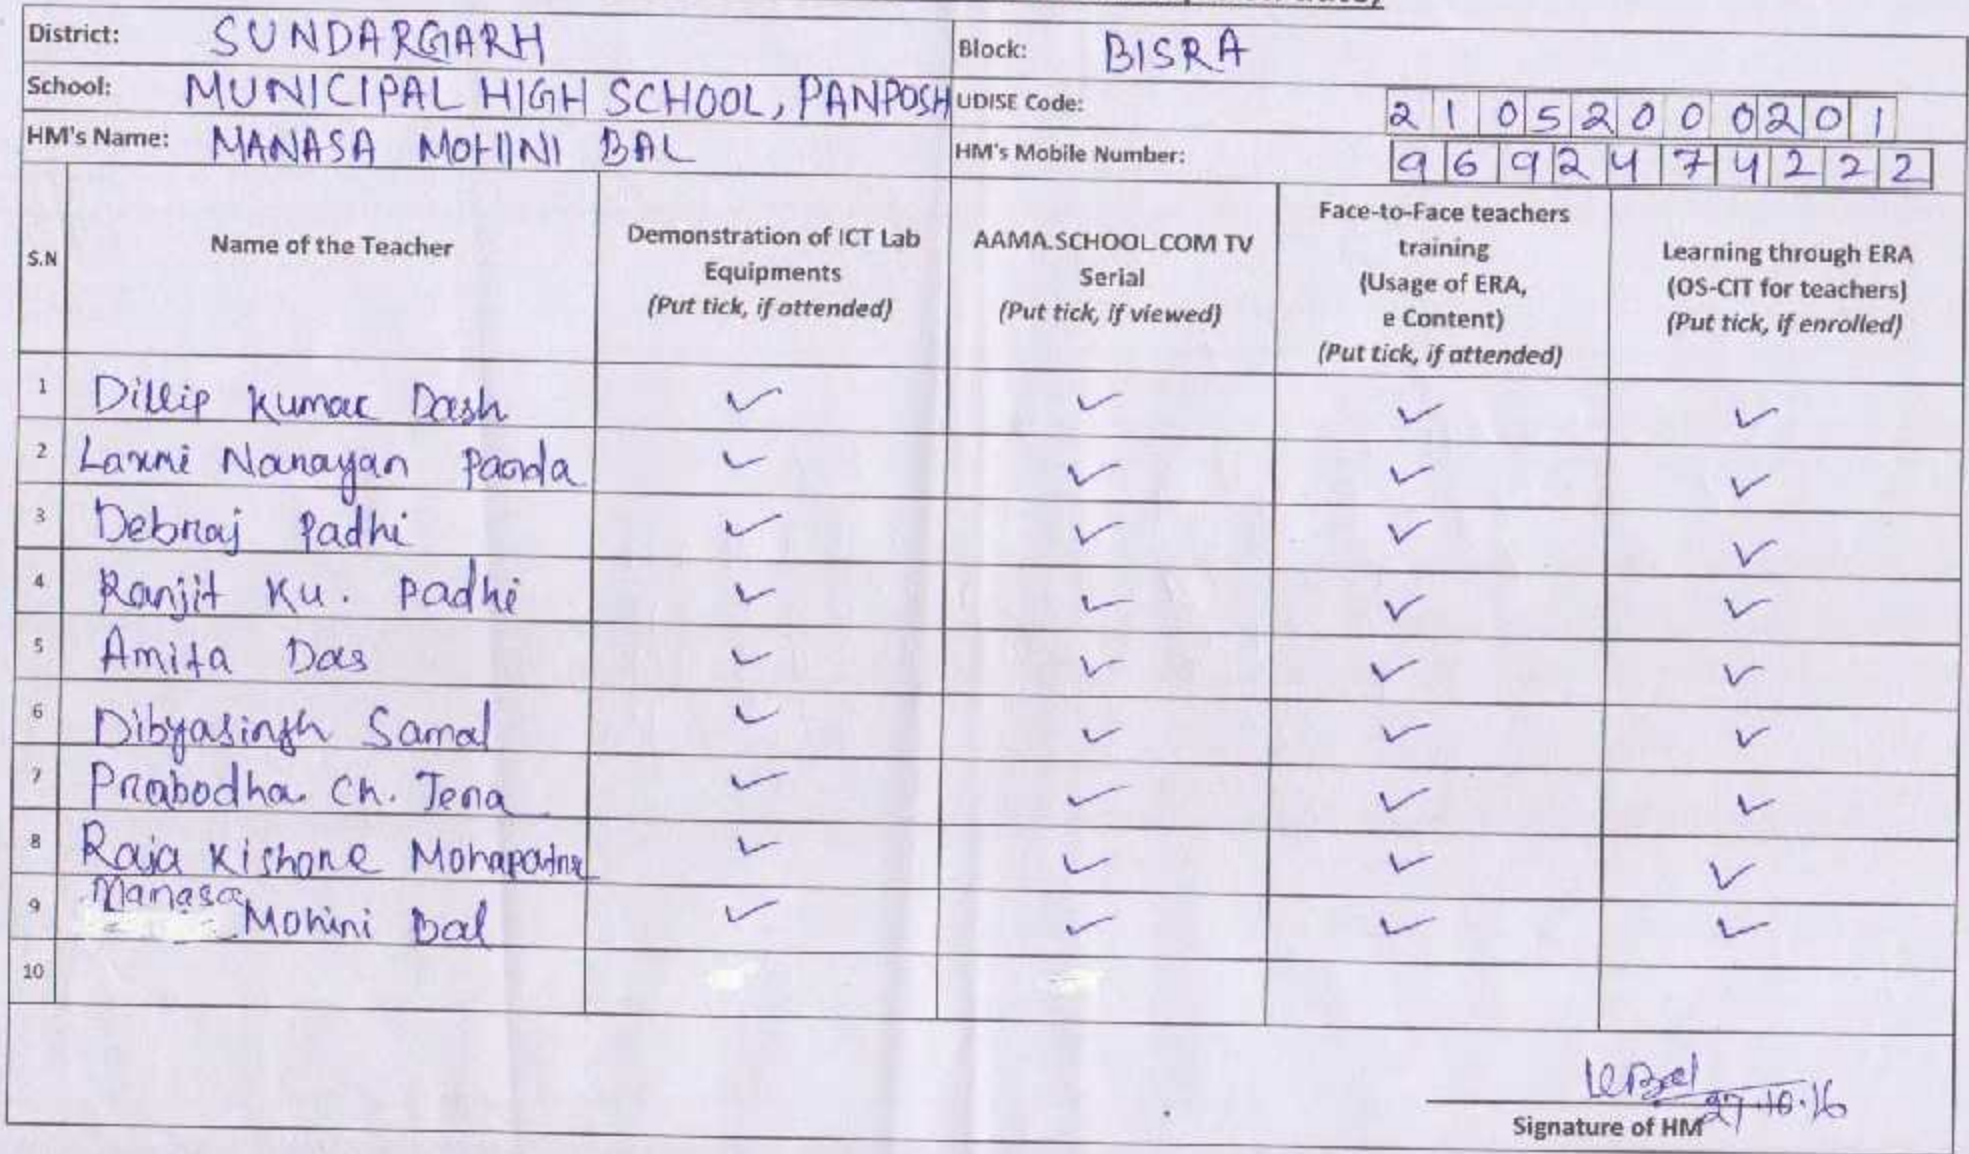 District: SUNDARGARH Block: BISRA
School: MUNICIPAL HIGH SCHOOL, PANPOSH UDISE Code: 21052000201
HM's Name: MANASA MOHINI BAL HM's Mobile Number: 9692474222
S.N
Name of the Teacher
Demonstration of ICT Lab
Equipments
(Put tick, if attended)
AAMA.SCHOOL.COM TV
Serial
(Put tick, if viewed)
Face-to-Face teachers
training
(Usage of ERA,
e Content)
(Put tick, if attended)
Learning through ERA
(OS-CIT for teachers)
(Put tick, if enrolled)
1 Dillip Kumar Dash ✓ ✓ ✓ ✓
2 Laxmi Narayan Panda ✓ ✓ ✓ ✓
3 Debraj Padhi ✓ ✓ ✓ ✓
4 Ranjit Ku. Padhi ✓ ✓ ✓ ✓
5 Amita Das ✓ ✓ ✓ ✓
6 Dibyasingh Samal ✓ ✓ ✓ ✓
7 Prabodha Ch. Jena ✓ ✓ ✓ ✓
8 Raja Kishore Mohapatra ✓ ✓ ✓ ✓
9 Manasa Mohini Bal ✓ ✓ ✓ ✓
10
27.10.16
Signature of HM